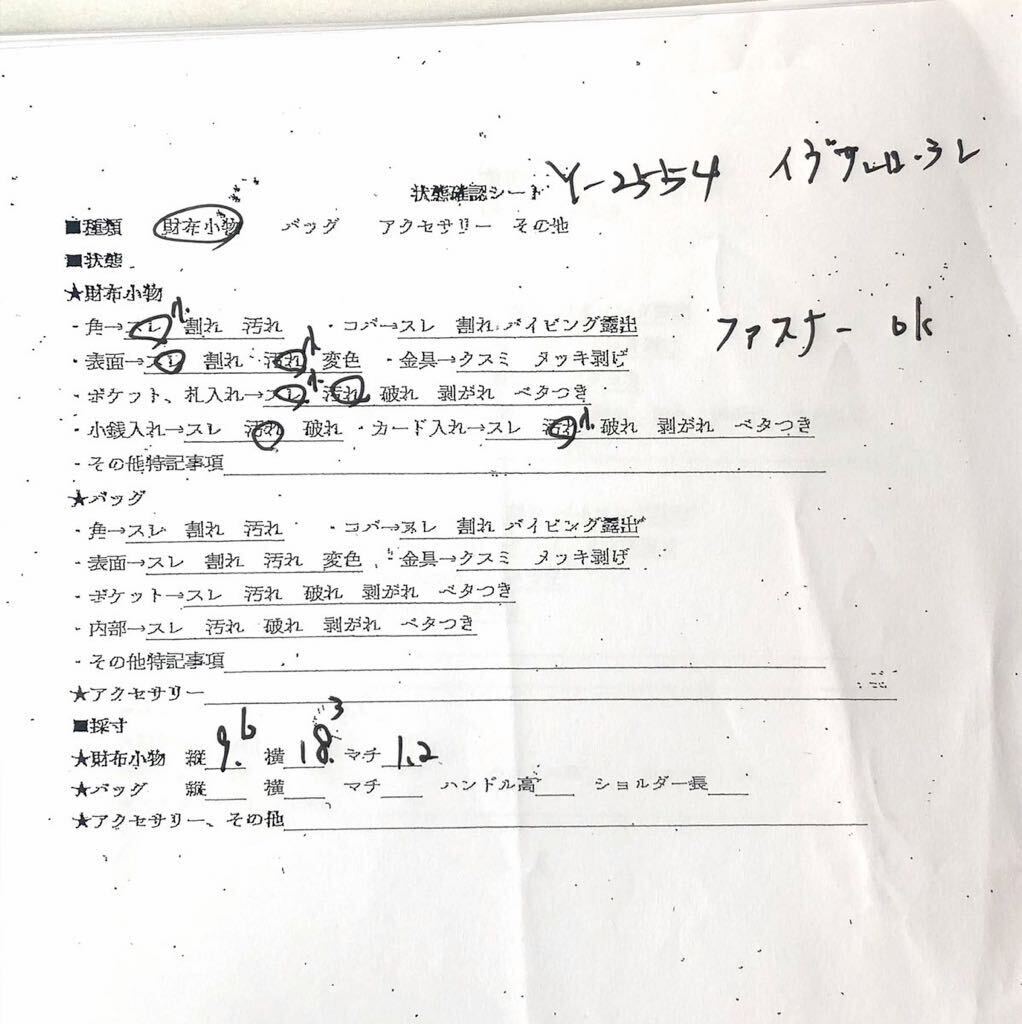 状態確認シート Y-2554 イヴサンローラン
■種類 財布小物 バッグ アクセサリー その他
■状態
★財布小物
・角→スレ 割れ 汚れ ・コバ→スレ 割れ パイピング露出
ファスナー ok
・表面→スレ 割れ 汚れ 変色 ・金具→クスミ メッキ剥げ
・ポケット、札入れ→スレ 汚れ 破れ 剥がれ ベタつき
・小銭入れ→スレ 汚れ 破れ ・カード入れ→スレ 汚れ 破れ 剥がれ ベタつき
・その他特記事項
★バッグ
・角→スレ 割れ 汚れ ・コバ→スレ 割れ パイピング露出
・表面→スレ 割れ 汚れ 変色 ・金具→クスミ メッキ剥げ
・ポケット→スレ 汚れ 破れ 剥がれ ベタつき
・内部→スレ 汚れ 破れ 剥がれ ベタつき
・その他特記事項
★アクセサリー
■採寸
★財布小物 縦 9.6 横 18.3 マチ 1.2
★バッグ 縦 横 マチ ハンドル高 ショルダー長
★アクセサリー、その他